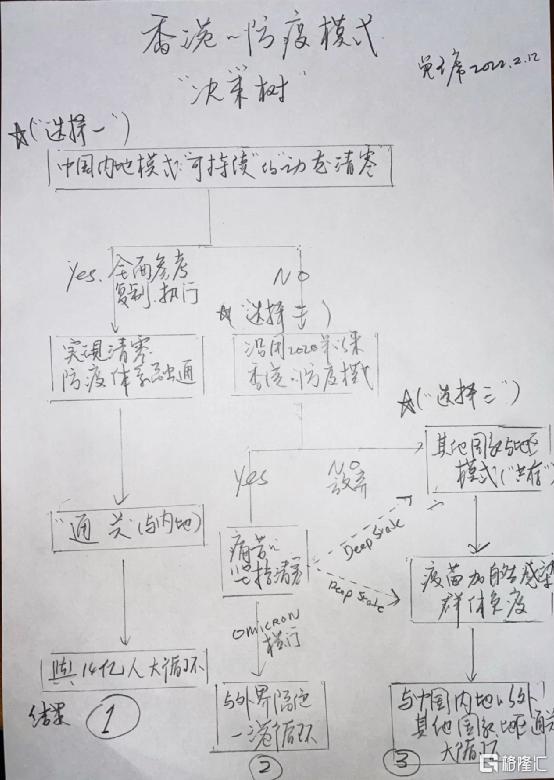 香港的防疫模式
"决策树"
2022.2.12
☆("选择一")
中国内地模式"可持续"的"动态清零"
Yes. 全面参考
复制.执行
NO
☆("选择二")
实现清零
防疫体系融通
沿用2020年以来
香港的防疫模式
☆("选择三")
Yes
NO
放弃
其他国家与地区
模式("共存")
"通关"(与内地)
痛苦的
坚持清零
Deep State
Deep State
疫苗加自然感染
群体免疫
OMICRON
横行
與14亿人大循环
与外界隔绝
一港循环
与中国内地以外
其他国家地区通关
大循环
结果
①
②
③
格隆汇